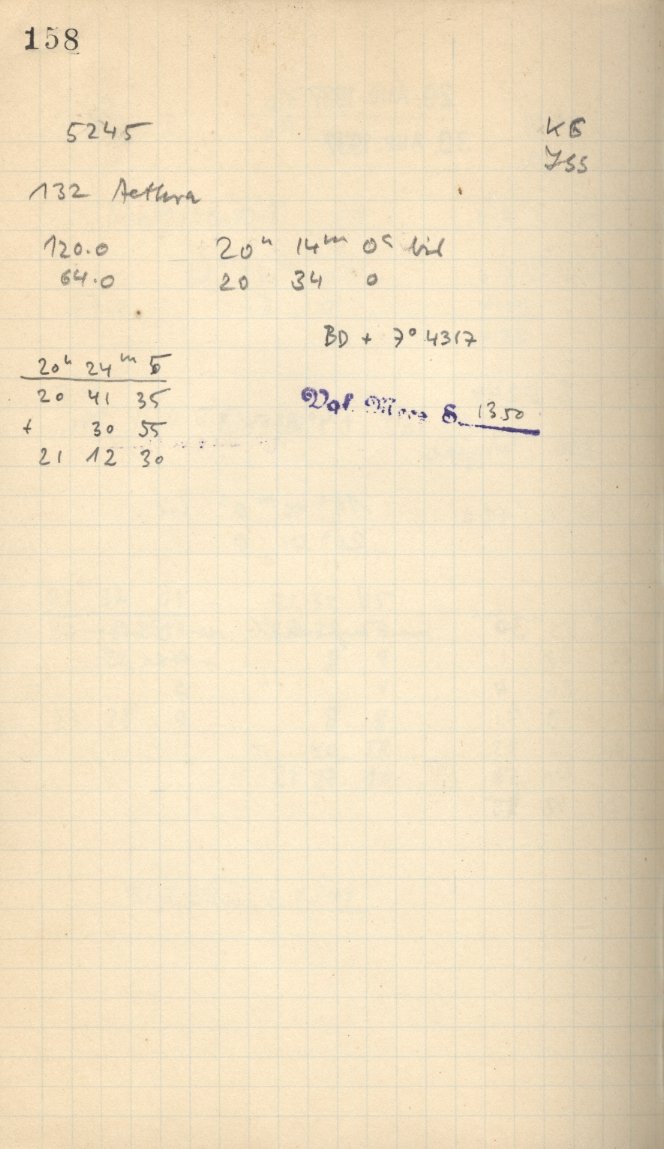 158
5245
KG
132 Aethra
120.0 20h 14m 0s bis
64.0 20 34 0
BD + 7° 4317
20h 24m 5
20 41 35
+ 30 55
21 12 30
S. 1350